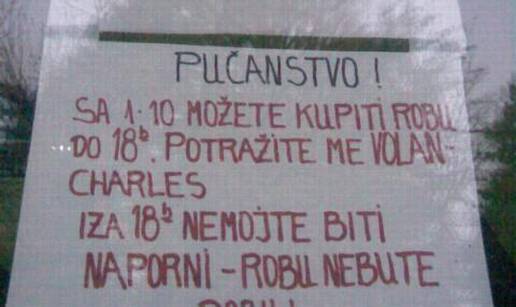 PUČANSTVO!
SA 1.10 MOŽETE KUPITI ROBU
DO 18h. POTRAŽITE ME VOLAN-
CHARLES
IZA 18h NEMOJTE BITI
NAPORNI - ROBU NEBUTE